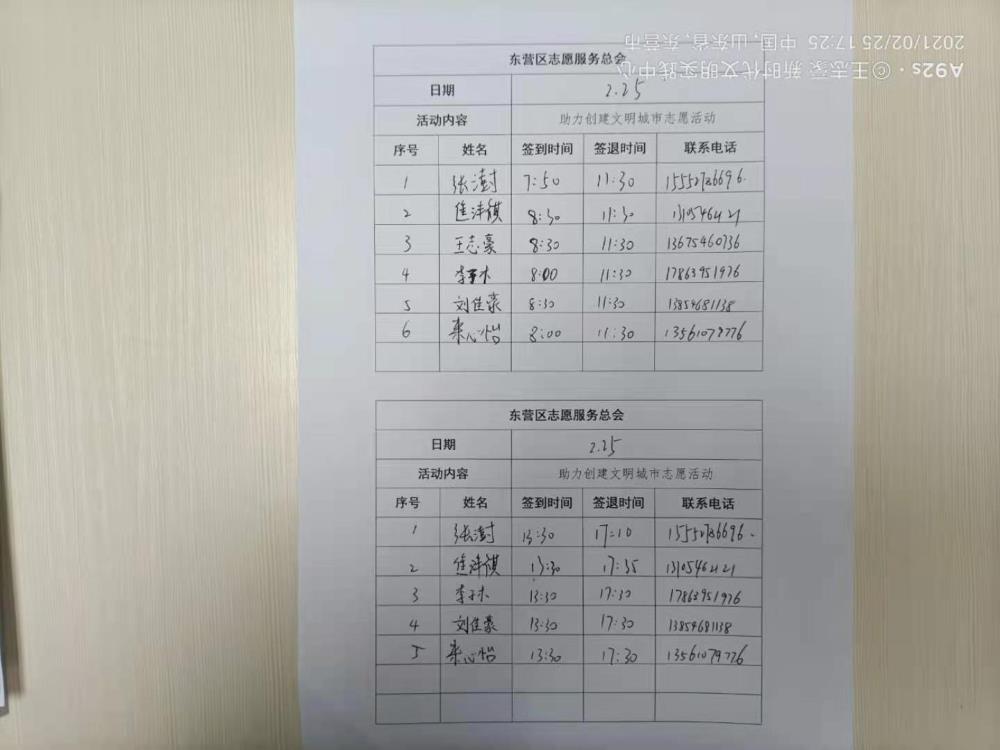 2021/02/25 17:25 中国, 山东省, 东营市
A92s · ©王志豪 新时代文明实践中心
东营区志愿服务总会
日期 2.25
活动内容 助力创建文明城市志愿活动
序号 姓名 签到时间 签退时间 联系电话
1 张澍 7:50 11:30
2 8:30 11:30
3 王志豪 8:30 11:30 13675460736
4 8:00 11:30 17863951976
5 刘佳豪 8:30 11:30 13854681138
6 栾心怡 8:00 11:30 13561079776
东营区志愿服务总会
日期 2.25
活动内容 助力创建文明城市志愿活动
序号 姓名 签到时间 签退时间 联系电话
1 张澍 13:30 17:10
2 13:30 17:35
3 13:30 17:30 17863951976
4 刘佳豪 13:30 17:30 13854681138
5 栾心怡 13:30 17:30 13561079776